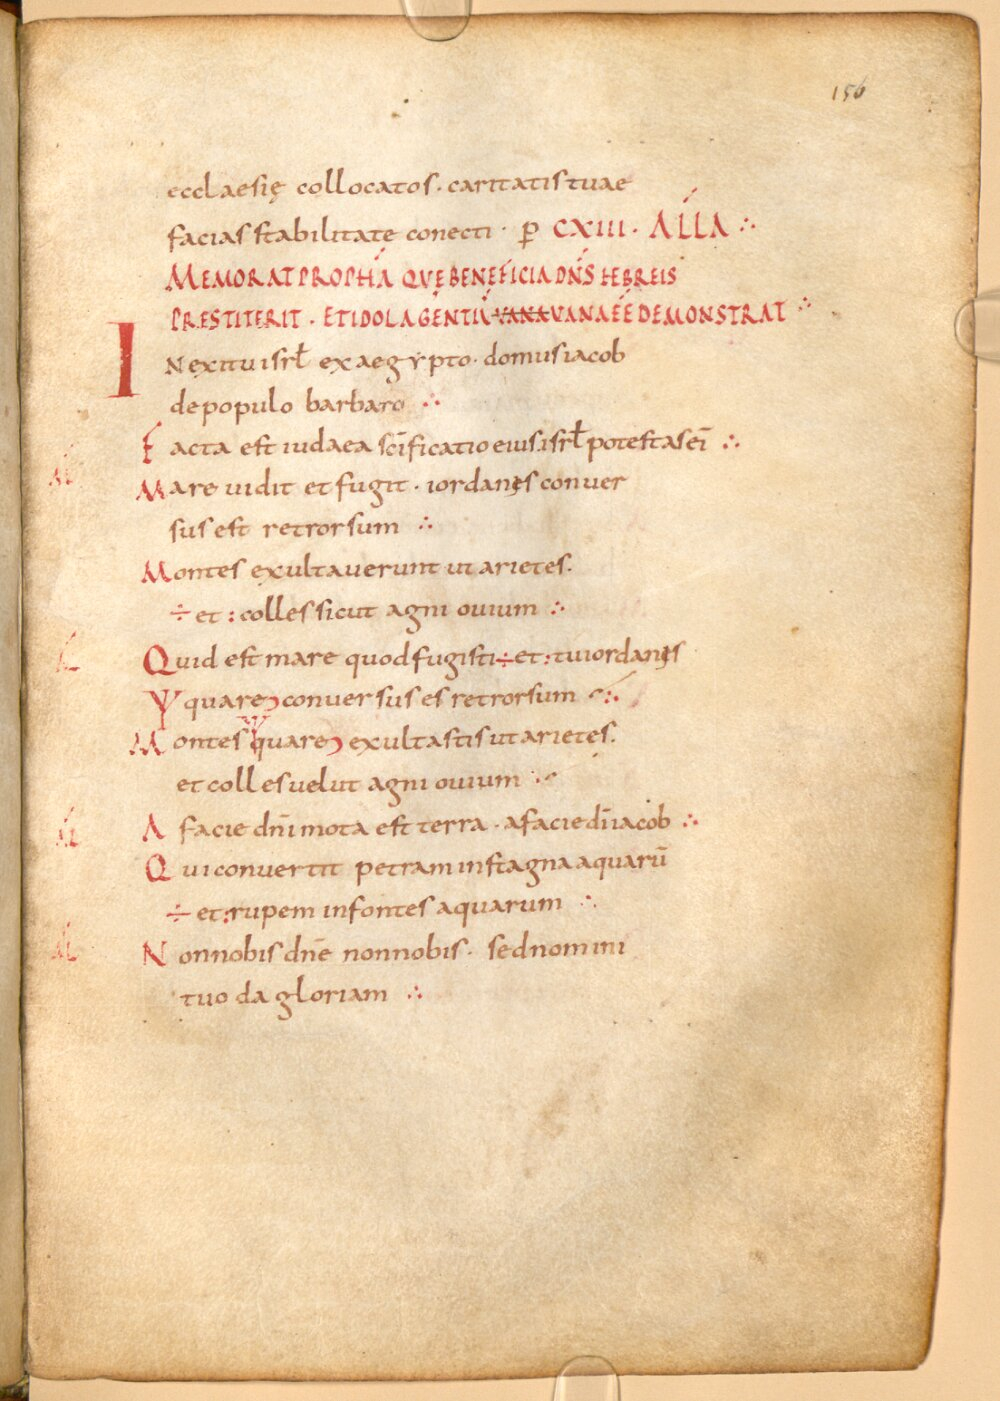 156
ecclaesię collocatos · caritatis tuae
facias stabilitate conecti · p̄ CXIII · ALLA ∴
MEMORAT PROPHA QUE BENEFICIA DN̄S HEBREIS
PRESTITERIT · ET IDOLA GENTIŪ VANA VANA EE DEMONSTRAT ∴
IN exitu isrł ex aegypto · domus iacob
de populo barbaro ∴
Facta est iudaea sc̄ificatio eius · isrł potestas ei ∴
Mare vidit et fugit · iordanęs conver
sus est retrorsum ∴
Montes exultaverunt ut arietes.
÷ et : colles sicut agni ovium ∴
Quid est mare quod fugisti ÷ et : tu iordanęs
quare conversus es retrorsum ∴
Montes quare exultastis ut arietes.
et colles velut agni ovium ∴
A facie dn̄i mota est terra · a facie dī iacob ∴
Qui convertit petram in stagna aquarū
÷ et : rupem in fontes aquarum ∴
Non nobis dn̄e non nobis · sed nomini
tuo da gloriam ∴